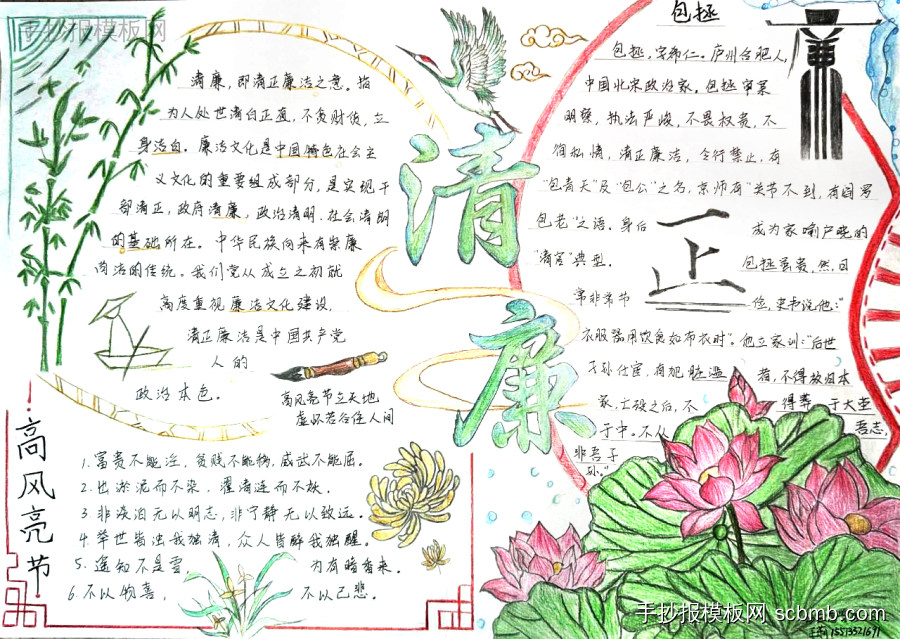 手抄报模板网
清廉，即清正廉洁之意。指
为人处世清白正直，不贪财货，立
身洁白。廉洁文化是中国特色社会主
义文化的重要组成部分，是实现干
部清正，政府清廉，政治清明，社会清朗
的基础所在。中华民族向来有崇廉
尚洁的传统。我们党从成立之初就
高度重视廉洁文化建设，
清正廉洁是中国共产党
人的
政治本色。
清
廉
高风亮节立天地
虚怀若谷住人间
高风亮节
1.富贵不能淫，贫贱不能移，威武不能屈。
2.出淤泥而不染，濯清涟而不妖。
3非淡泊无以明志，非宁静无以致远。
4.举世皆浊我独清，众人皆醉我独醒。
5.遥知不是雪，为有暗香来。
6.不以物喜，不以己悲。
包拯
包拯，字希仁。庐州合肥人，
中国北宋政治家。包拯审案
明察，执法严峻，不畏权贵，不
徇私情，清正廉洁，令行禁止，有
"包青天"及"包公"之名，京师有"关节不到，有阎罗
包老"之语。身后 成为家喻户晓的
"清官"典型。 包拯虽贵，然日
常非常节 俭，史书说他："
衣服器用饮食如布衣时"。他立家训："后世
子孙仕宦，有犯脏滥者，不得放归本
家，亡殁之后，不得葬于大茔
于中。不从吾志，
非吾子
孙。"
正
手抄报模板网 scbmb.com